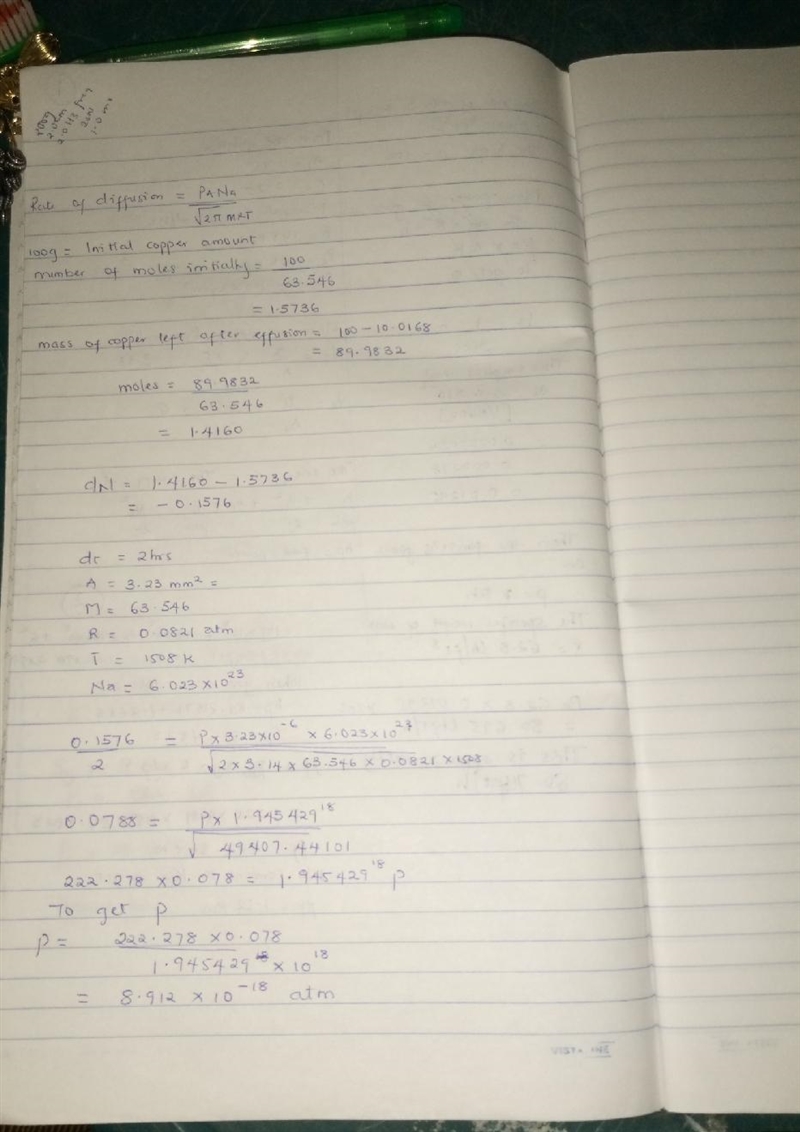 Rate of diffusion = PANa
√2π MRT
100g = Initial copper amount
number of moles initially = 100
63.546
= 1.5736
mass of copper left after effusion = 100 - 10.0168
= 89.9832
moles = 89.9832
63.546
= 1.4160
dN = 1.4160 - 1.5736
= - 0.1576
dt = 2hrs
A = 3.23 mm² =
M = 63.546
R = 0.0821 atm
T = 1508 K
Na = 6.023 x10²³
0.1576 = P x 3.23x10⁻⁶ x 6.023x10²³
2 √2 x 3.14 x 63.546 x 0.0821 x 1508
0.0788 = P x 1.945429¹⁸
√49407.44101
222.278 x 0.078 = 1.945429¹⁸ P
To get P
P = 222.278 x 0.078
1.945429 x 10¹⁸
= 8.912 x 10⁻¹⁸ atm